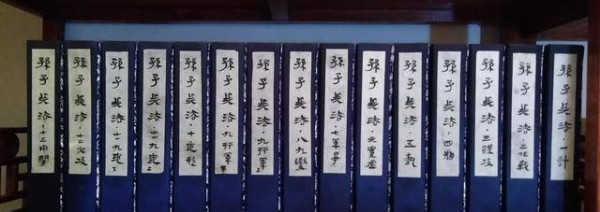 孫子兵法·一計
孫子兵法·二作戰
孫子兵法·三謀攻
孫子兵法·四形
孫子兵法·五勢
孫子兵法·六虛實
孫子兵法·七軍爭
孫子兵法·八九變
孫子兵法·九行軍
孫子兵法·九行軍
孫子兵法·十地形
孫子兵法·十一九地
孫子兵法·十一九地
孫子兵法·十二火攻
孫子兵法·十三用間